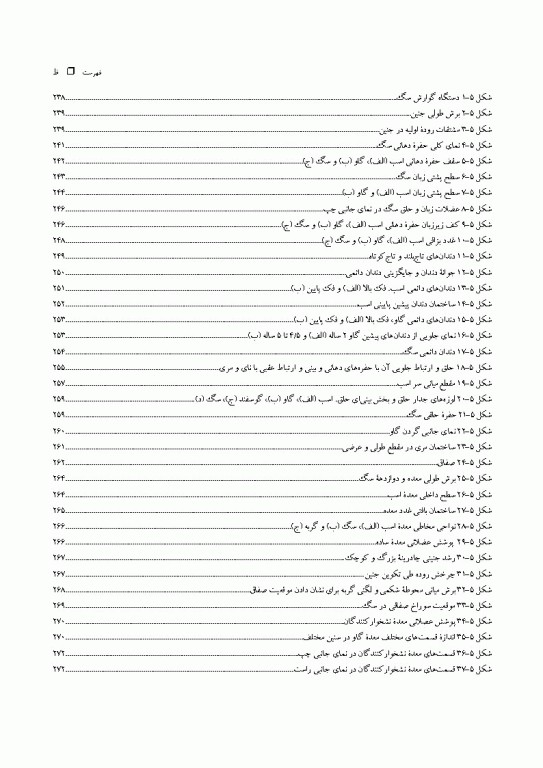 فهرست ❒ ظ
شکل ۵-۱ دستگاه گوارش سگ ۲۳۸
شکل ۵-۲ برش طولی جنین ۲۳۹
شکل ۵-۳ مشتقات رودهٔ اولیه در جنین ۲۳۹
شکل ۵-۴ نمای کلی حفرهٔ دهانی سگ ۲۴۱
شکل ۵-۵ سقف حفرهٔ دهانی اسب (الف)، گاو (ب) و سگ (ج) ۲۴۲
شکل ۵-۶ سطح پشتی زبان سگ ۲۴۳
شکل ۵-۷ سطح پشتی زبان اسب (الف) و گاو (ب) ۲۴۴
شکل ۵-۸ عضلات زبان و حلق سگ در نمای جانبی چپ ۲۴۶
شکل ۵-۹ کف زیرزبان حفرهٔ دهانی اسب (الف)، گاو (ب) و سگ (ج) ۲۴۶
شکل ۵-۱۰ غدد بزاقی اسب (الف)، گاو (ب) و سگ (ج) ۲۴۸
شکل ۵-۱۱ دندان‌های تاج‌بلند و تاج‌کوتاه ۲۴۹
شکل ۵-۱۲ جوانهٔ دندان و جایگزینی دندان دائمی ۲۵۰
شکل ۵-۱۳ دندان‌های دائمی اسب. فک بالا (الف) و فک پایین (ب) ۲۵۱
شکل ۵-۱۴ ساختمان دندان پیشین پایینی اسب ۲۵۲
شکل ۵-۱۵ دندان‌های دائمی گاو، فک بالا (الف) و فک پایین (ب) ۲۵۳
شکل ۵-۱۶ نمای جلویی از دندان‌های پیشین گاو ۲ ساله (الف) و ۴/۵ تا ۵ ساله (ب) ۲۵۳
شکل ۵-۱۷ دندان دائمی سگ ۲۵۴
شکل ۵-۱۸ حلق و ارتباط جلویی آن با حفره‌های دهانی و بینی و ارتباط عقبی با نای و مری ۲۵۵
شکل ۵-۱۹ مقطع میانی سر اسب ۲۵۷
شکل ۵-۲۰ لوزه‌های جدار حلق و بخش بینی‌ای حلق. اسب (الف)، گاو (ب)، گوسفند (ج)، سگ (د) ۲۵۹
شکل ۵-۲۱ حفرهٔ حلقی سگ ۲۵۹
شکل ۵-۲۲ نمای جانبی گردن گاو ۲۶۰
شکل ۵-۲۳ ساختمان مری در مقطع طولی و عرضی ۲۶۱
شکل ۵-۲۴ صفاق ۲۶۲
شکل ۵-۲۵ برش طولی معده و دوازدههٔ سگ ۲۶۴
شکل ۵-۲۶ سطح داخلی معدهٔ اسب ۲۶۴
شکل ۵-۲۷ ساختمان بافتی غدد معده ۲۶۵
شکل ۵-۲۸ نواحی مخاطی معدهٔ اسب (الف)، سگ (ب) و گربه (ج) ۲۶۶
شکل ۵-۲۹ پوشش عضلانی معدهٔ ساده ۲۶۶
شکل ۵-۳۰ رشد جنینی چادرینهٔ بزرگ و کوچک ۲۶۷
شکل ۵-۳۱ چرخش روده طی تکوین جنین ۲۶۷
شکل ۵-۳۲ برش میانی محوطهٔ شکمی و لگنی گربه برای نشان دادن موقعیت صفاق ۲۶۸
شکل ۵-۳۳ موقعیت سوراخ صفاقی در سگ ۲۶۹
شکل ۵-۳۴ پوشش عضلانی معدهٔ نشخوارکنندگان ۲۷۰
شکل ۵-۳۵ اندازهٔ قسمت‌های مختلف معدهٔ گاو در سنین مختلف ۲۷۰
شکل ۵-۳۶ قسمت‌های معدهٔ نشخوارکنندگان در نمای جانبی چپ ۲۷۲
شکل ۵-۳۷ قسمت‌های معدهٔ نشخوارکنندگان در نمای جانبی راست ۲۷۲